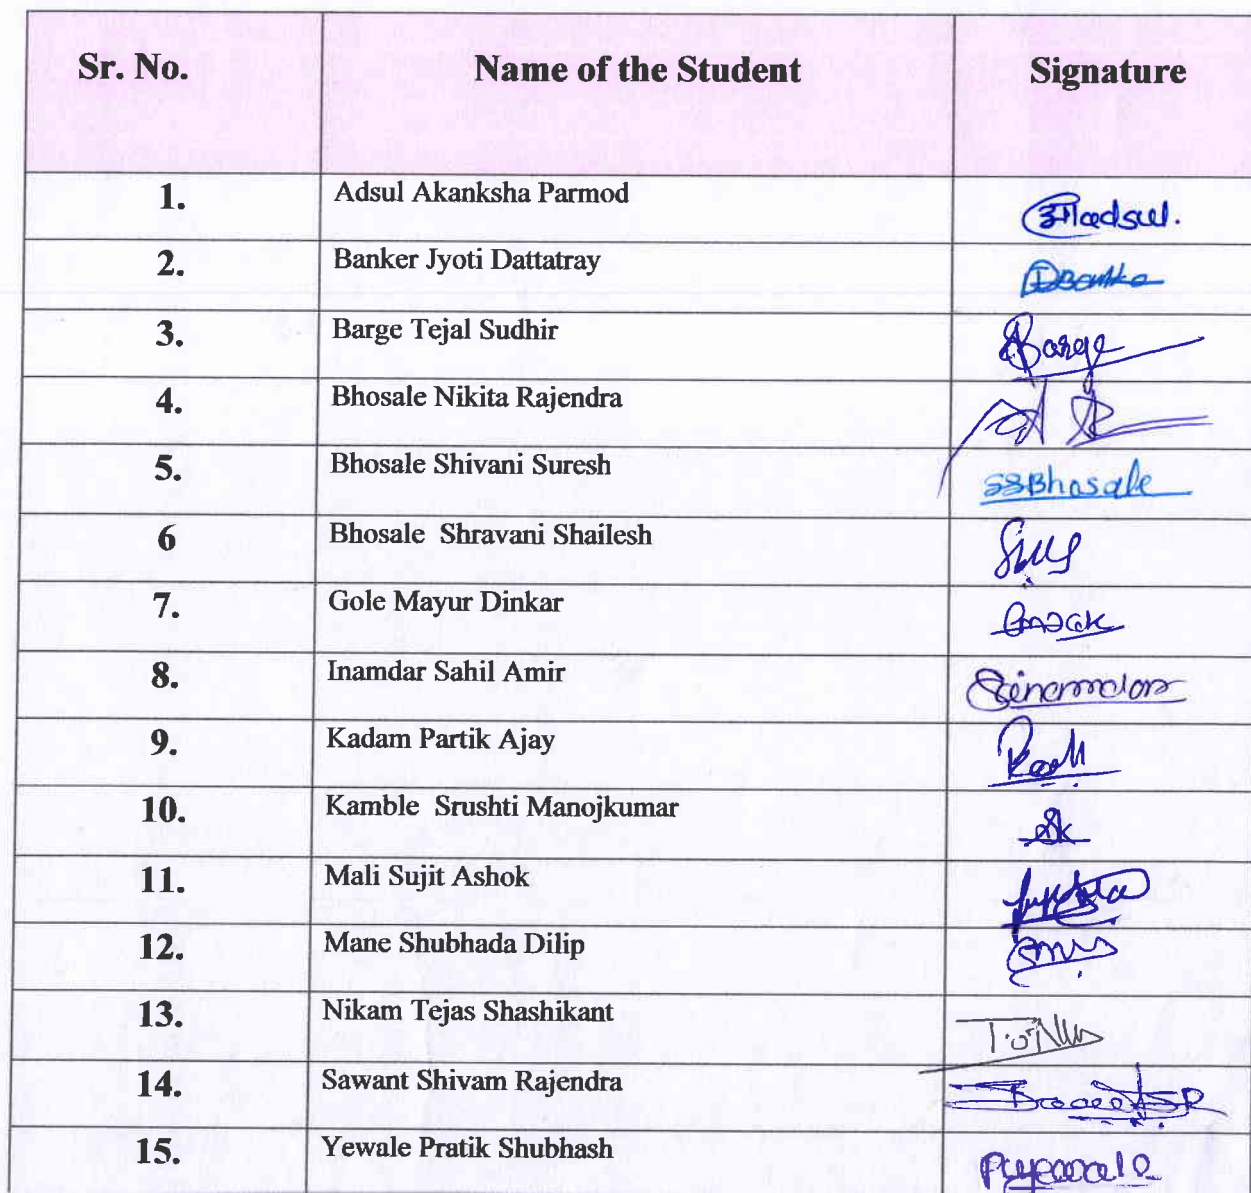 Sr. No. Name of the Student Signature
1. Adsul Akanksha Parmod आadsul.
2. Banker Jyoti Dattatray
3. Barge Tejal Sudhir Barge
4. Bhosale Nikita Rajendra
5. Bhosale Shivani Suresh SSBhosale
6 Bhosale Shravani Shailesh
7. Gole Mayur Dinkar
8. Inamdar Sahil Amir
9. Kadam Partik Ajay
10. Kamble Srushti Manojkumar Sk
11. Mali Sujit Ashok
12. Mane Shubhada Dilip
13. Nikam Tejas Shashikant
14. Sawant Shivam Rajendra
15. Yewale Pratik Shubhash Pyewale